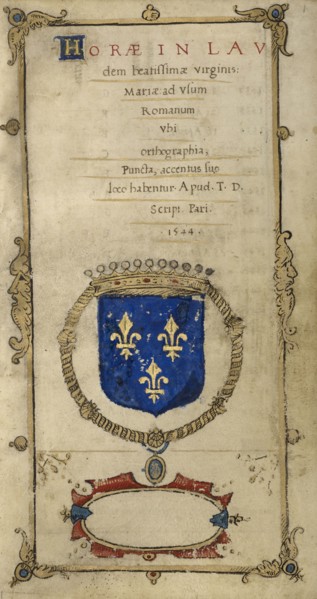 HORÆ IN LAV
dem beatissimæ virginis:
Mariæ ad vsum
Romanum
vbi
orthographia,
Puncta, accentus suo
loco habentur. Apud. T. D.
Script. Pari.
1544.